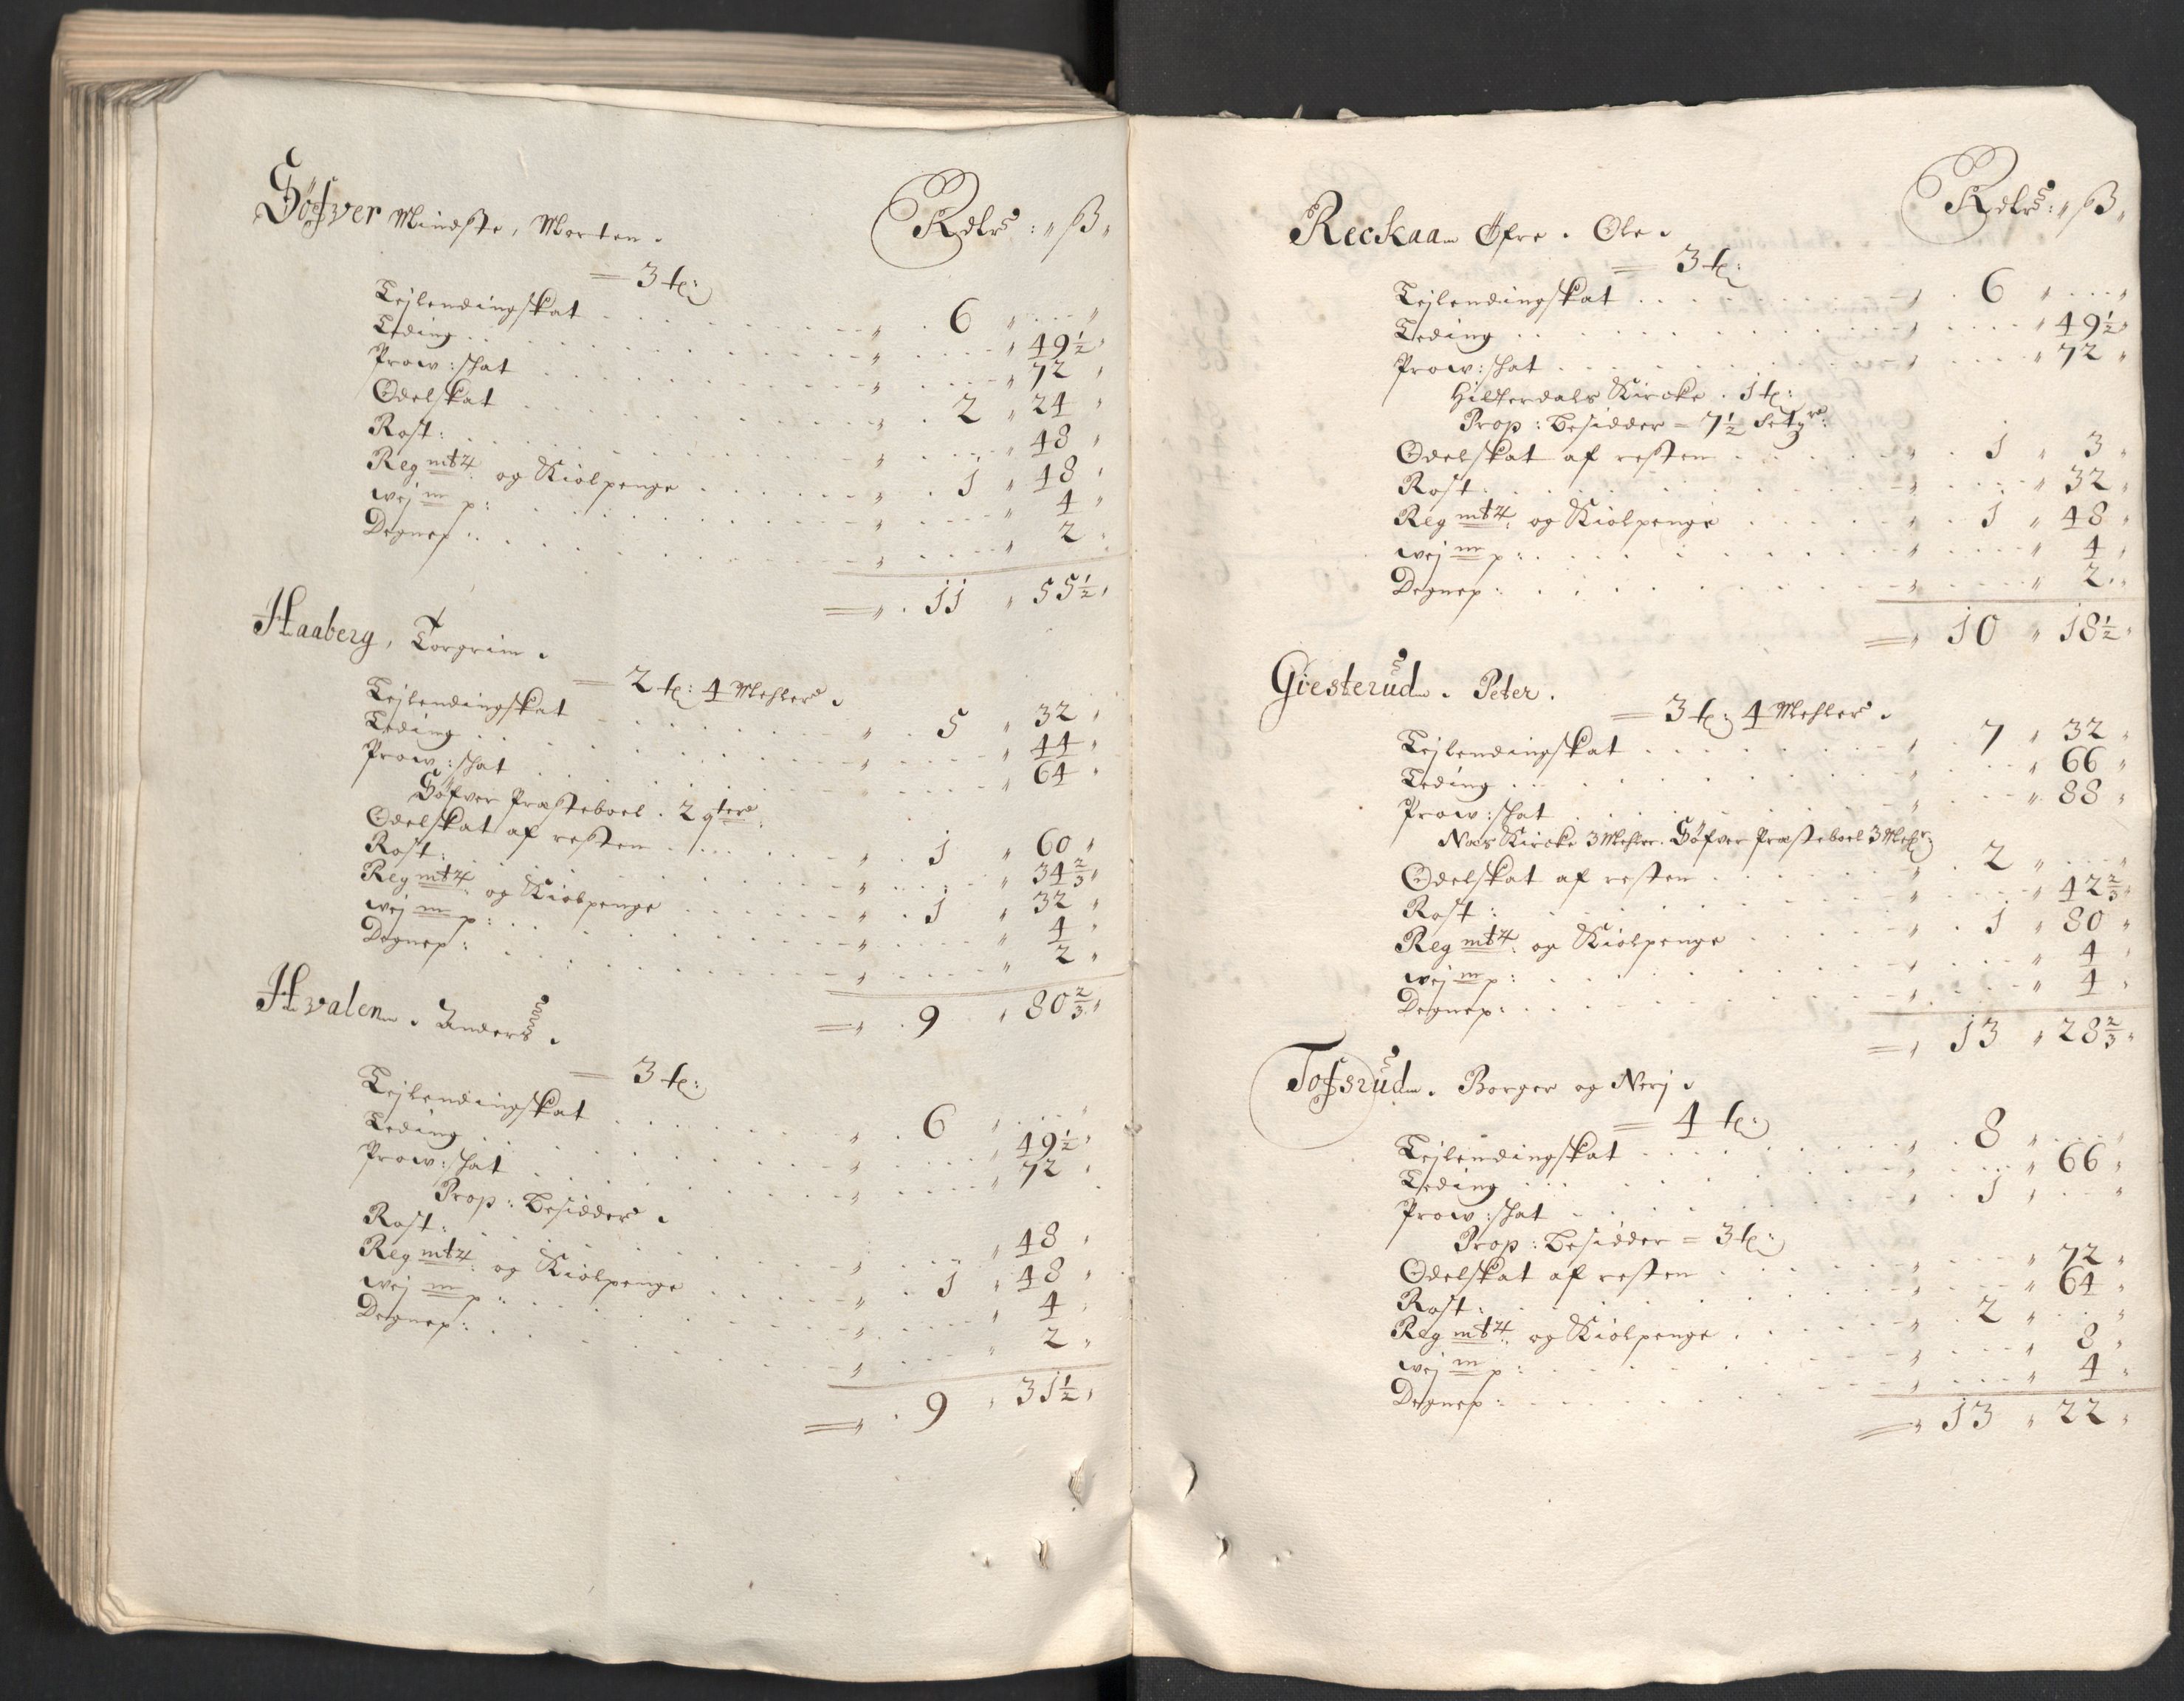 Söfver Mindste, Morten. Rdlr: ß
= 3 t:
Leilendingskat 6
Leding 49½
Prow: skat 72
Odelskat 2 24
Rost: 48
Reg mt4 og Kiolpenge 1 48
wej m p: 4
Degnep: 2
= 11 55½
Haaberg, Torgrim.
= 2 t: 4 Mehler.
Leilendingskat 5 32
Leding 44
Prow: skat 64
Söfver Præsteboel. 2 qter:
Odelskat af resten 1 60
Rost: 34⅔
Reg mt4 og Kiolpenge 1 32
wej m p: 4
Degnep: 2
= 9 80⅔
Hvalen. Anders.
= 3 t:
Leilendingskat 6
Leding 49½
Prow: skat 72
Prop: Besidder.
Rost: 48
Reg mt4 og Kiolpenge 1 48
wej m p: 4
Degnep: 2
= 9 31½
Reckaa Öfre. Ole. Rdlr: ß
= 3 t:
Leilendingskat 6
Leding 49½
Prow: skat 72
Hitterdals Kircke. 1 t:
Prop: Besidder = 7½ Setgr:
Odelskat af resten 1 3
Rost: 32
Reg mt4 og Kiolpenge 1 48
wej m p: 4
Degnep: 2
= 10 18½
Giesterud. Peter.
= 3 t: 4 Mehler.
Leilendingskat 7 32
Leding 66
Prow: skat 88
Nes Kircke 3 Mehler. Söfver Præsteboel 3 Mehr:
Odelskat af resten 2
Rost: 42⅔
Reg mt4 og Kiolpenge 1 80
wej m p: 4
Degnep: 4
= 13 28⅔
Tofsrud. Borger og Nerj.
= 4 t:
Leilendingskat 8
Leding 66
Prow: skat 1
Prop: Besidder = 3 t:
Odelskat af resten 72
Rost: 64
Reg mt4 og Kiolpenge 2
wej m p: 8
Degnep: 4
= 13 22